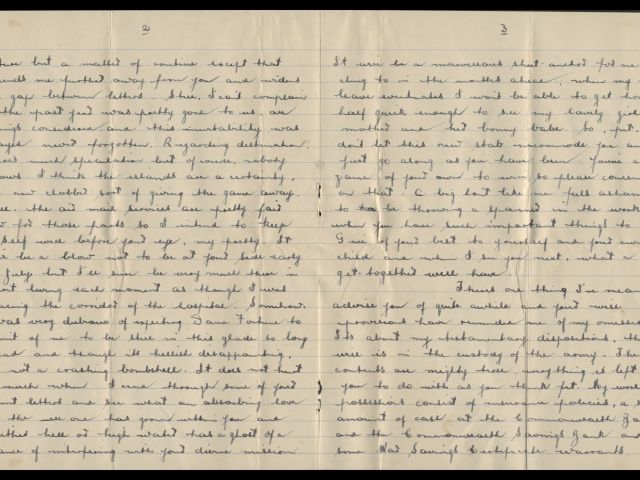 2
but a matter of routine except that
me further away from you and widens
gap between letters. Still, I can't complain
the past year was pretty good to us, all
considered and this inevitability was
never forgotten. Regarding destination
much speculation but of course, nobody
I think the islands are a certainty,
new clobber sort of giving the game away.
the air mail services are pretty fair
for those parts so I intend to keep
self well before your eye, my pretty. It
be a blow not to be at your side early
July but I'll sure be very much there in
living each moment as though I was
the corridor of the hospital. Somehow
was very dubious of expecting Dame Fortune to
of us to be still in this glade so long
and though its hellish disappointing,
not a crashing bombshell. It does not hurt
much when I read through some of your
letters and see what an absorbing love
the wee one has grown within you and
hell or high water has a ghost of a
of interfering with your divine mission
3
It will be a marvellous sheet anchor for me
cling to in the months ahead; when my
leave eventuates I won't be able to get
half quick enough to see my lovely
mother and her bonny babe. So, pet,
don't let this new stab incommode you
just go along as you have been. You've a
game of your own to win so please
on that. A big lout like me feels
to be throwing a spanner in the
when you have such important things to
Give of your best to yourself and your
child and when I see you next, what a
get-together we'll have.
There's one thing I've
advise you of quite awhile and your
provisions have reminded me of my
It's about my testamentary dispositions, the
will is in the custody of the army. The
contents are mighty brief, everything is left
you to do with as you think fit. My
possessions consist of insurance policies, a
amount of cash at the Commonwealth
and the Commonwealth Savings Bank and
some War Savings Certificate warrants.